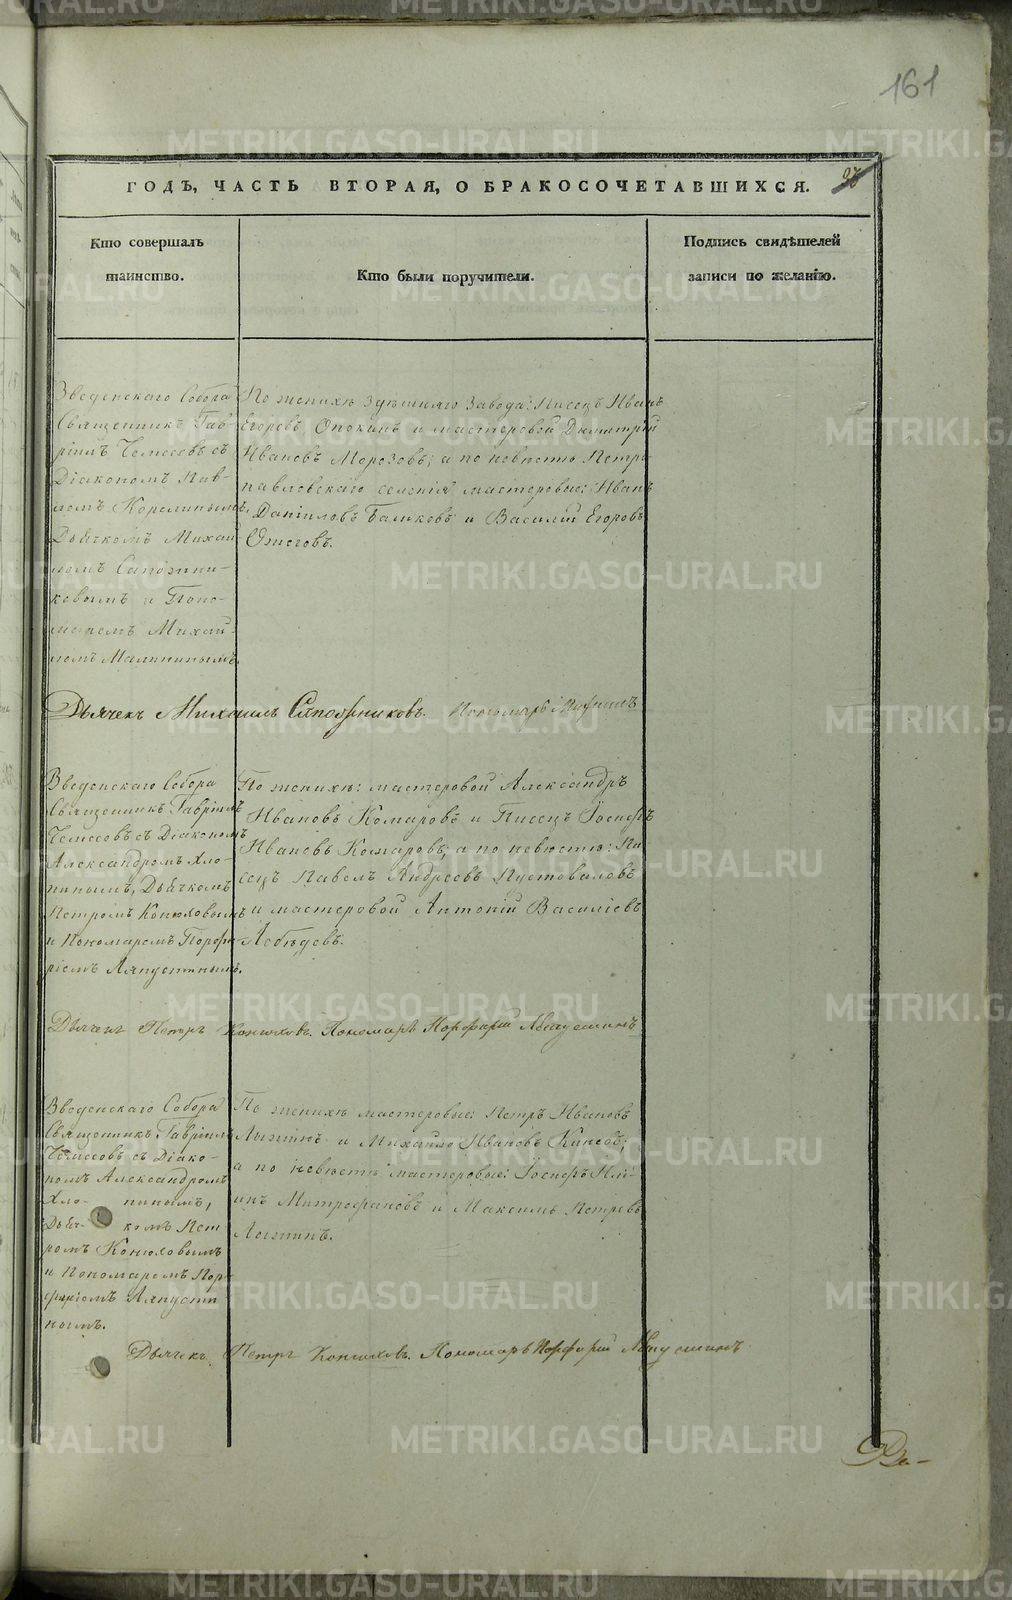 161
ГОДЪ, ЧАСТЬ ВТОРАЯ, О БРАКОСОЧЕТАВШИХСЯ.
Кто совершалъ
таинство.
Кто были поручители.
Подпись свидѣтелей
записи по желанію.
Введенскаго Собора
Священникъ Гав-
ріилъ Чемесовъ съ
Діакономъ Пав-
ломъ Корелинымъ,
Дьячкомъ Михаи-
ломъ Сапожни-
ковымъ и Поно-
маремъ Михаи-
ломъ Малининымъ.
По женихѣ здѣшняго завода: Писецъ Иванъ
Егоровъ Опокинъ и мастеровой Димитрій
Ивановъ Морозовъ; а по невѣстѣ Петро-
павловскаго селенія мастеровые: Иванъ
Даніиловъ Балковъ и Василій Егоровъ
Ожеговъ.
Дьячекъ Михаилъ Сапожниковъ. Пономарь Михаилъ
Введенскаго Собора
Священникъ Гавріилъ
Чемесовъ съ Діакономъ
Александромъ Хло-
пинымъ, Дьячкомъ
Петромъ Конюховымъ
и Пономаремъ Порфи-
ріемъ Ляпустинымъ.
По женихѣ: мастеровой Александръ
Ивановъ Комаровъ и Писецъ Іосифъ
Ивановъ Комаровъ, а по невѣстѣ: Пи-
сецъ Павелъ Андреевъ Пустоваловъ
и мастеровой Антоній Василіевъ
Лебѣдевъ.
Дьячекъ Петръ Конюховъ. Пономарь Порфирій Ляпустинъ
Введенскаго Собора
Священникъ Гавріилъ
Чемесовъ съ Діако-
номъ Александромъ
Хло- пинымъ,
Дьяч- комъ Пет
ромъ Конюховымъ
и Пономаремъ Пор-
фиріемъ Ляпусти
нымъ.
По женихѣ мастеровые: Петръ Ивановъ
и Михайло Ивановъ
а по невѣстѣ мастеровые: Іосифъ Иль-
инъ Митрофановъ и Максимъ Петровъ
Дьячекъ Петръ Конюховъ. Пономарь Порфирій Ляпустинъ
METRIKI.GASO-URAL.RU